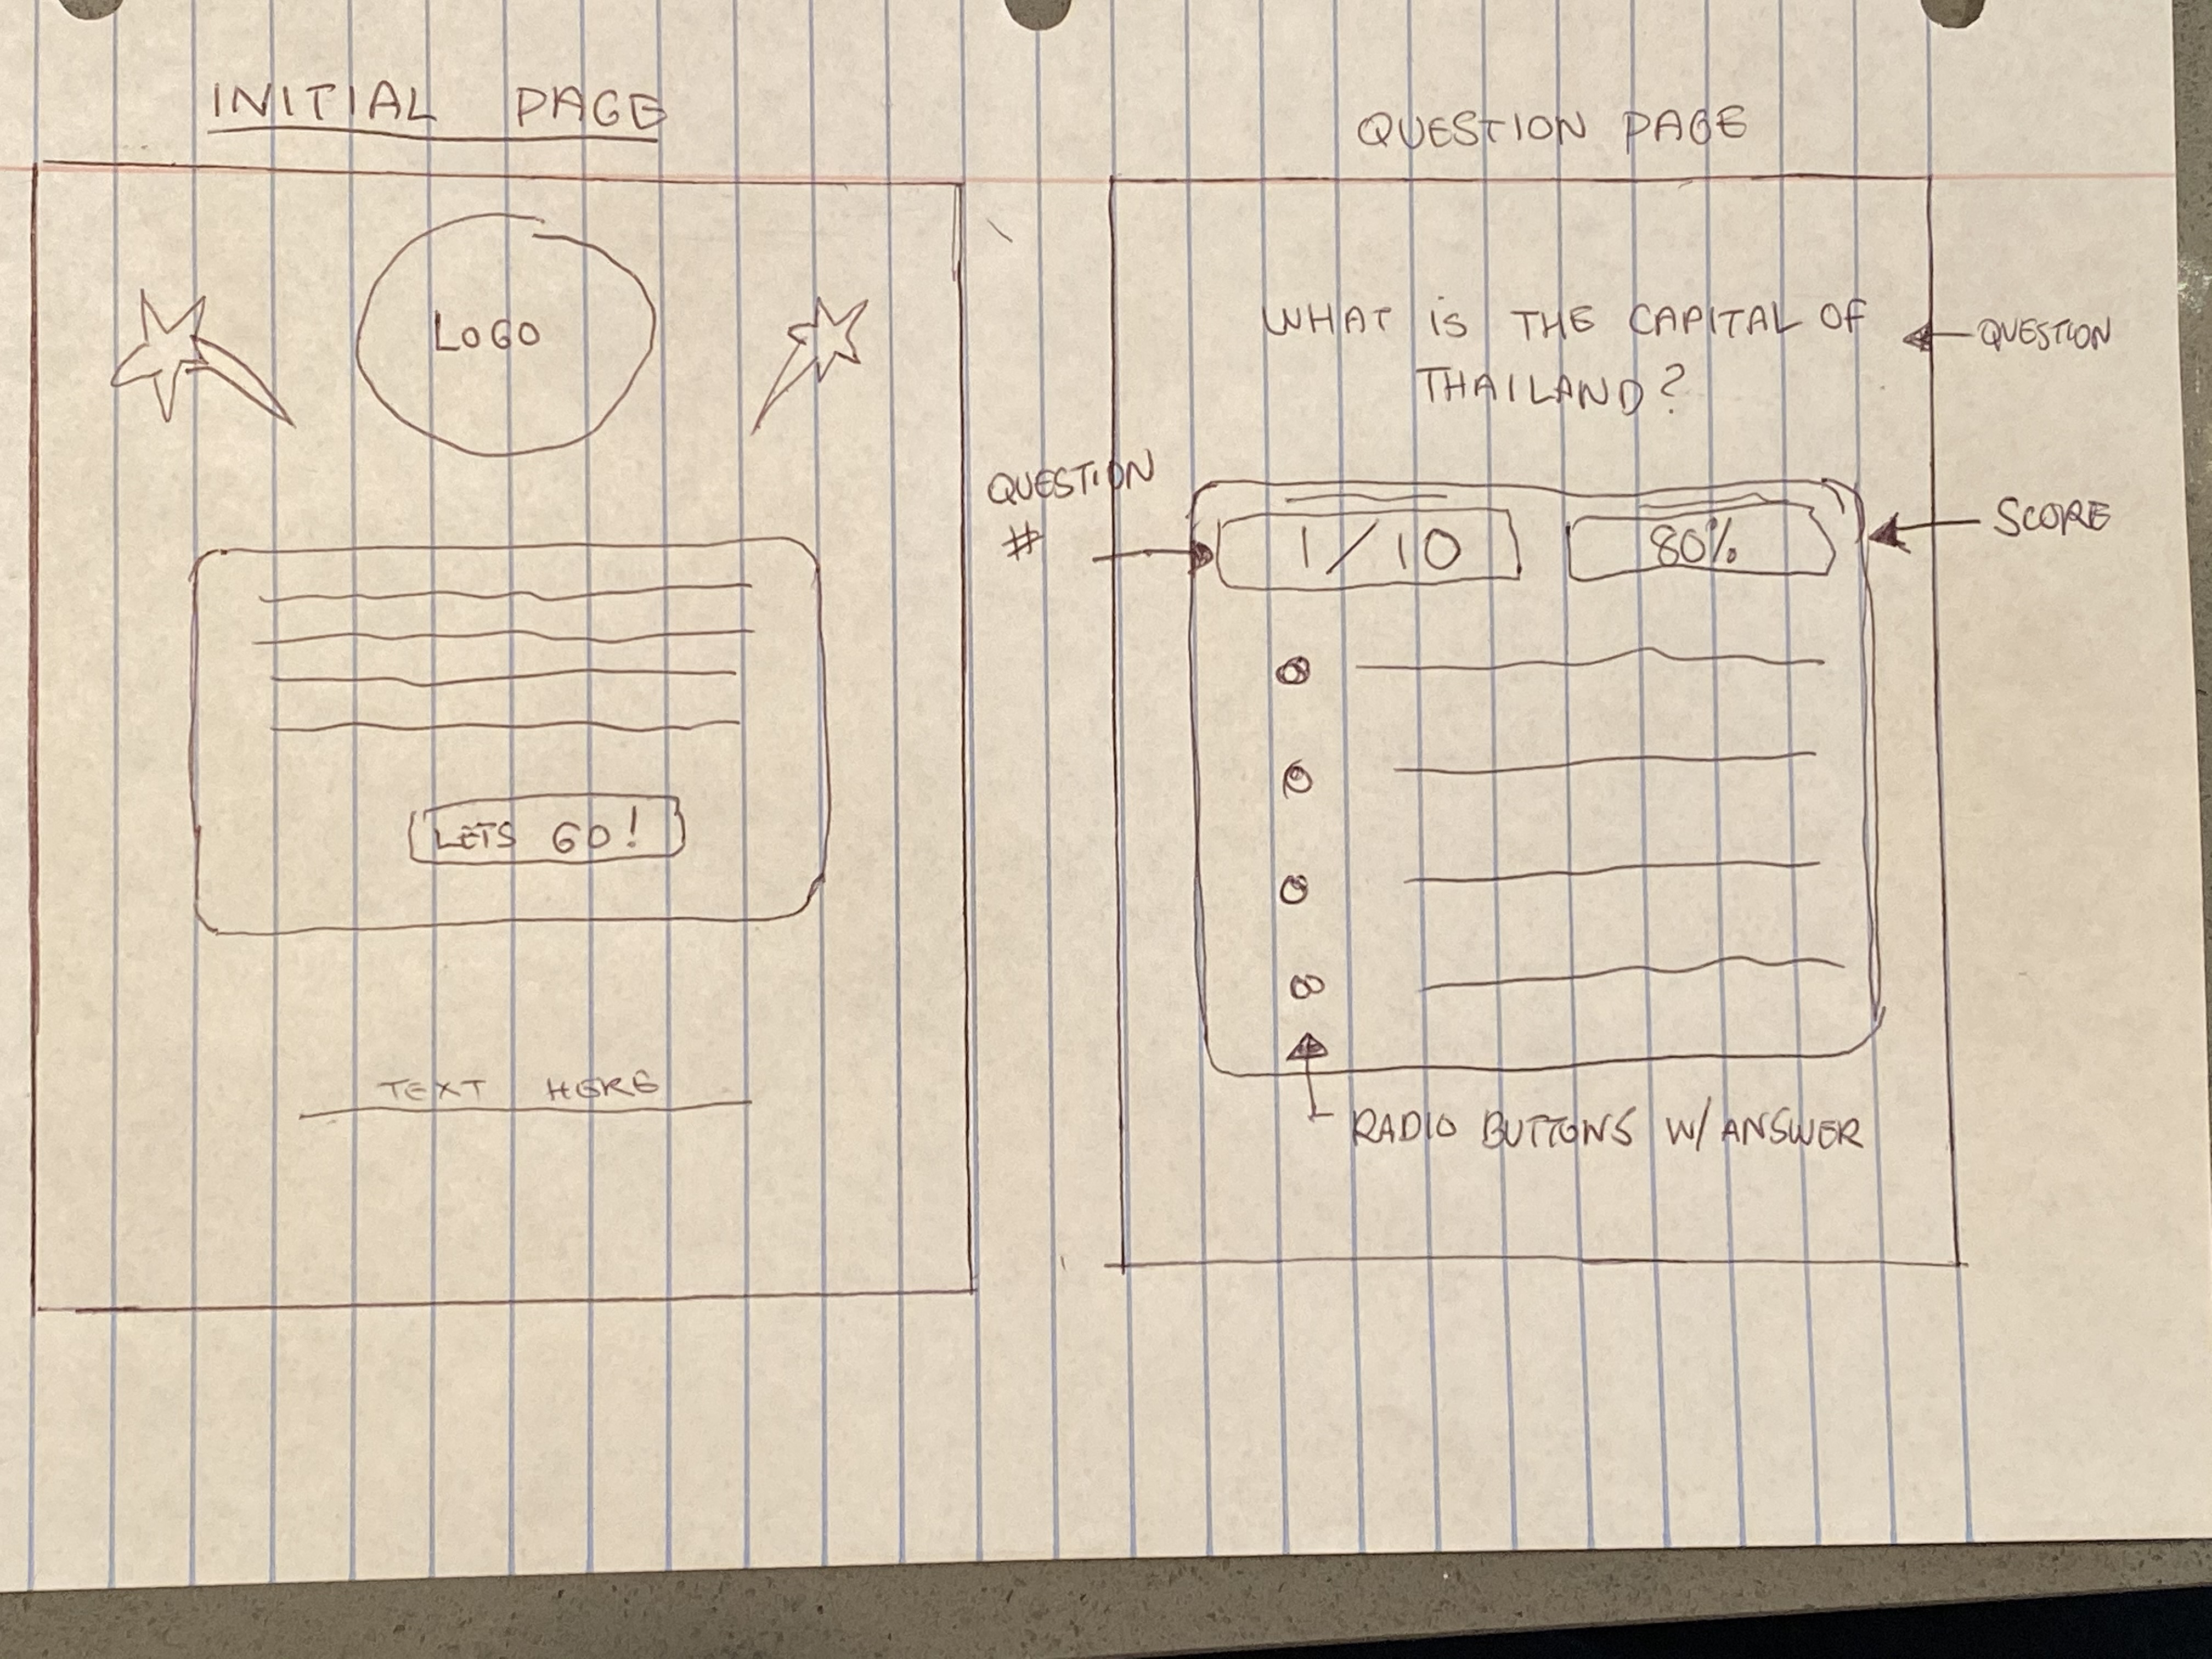 INITIAL PAGE
LOGO
LETS GO!
TEXT HERE
QUESTION PAGE
WHAT is THE CAPITAL OF
THAILAND?
QUESTION
QUESTION
#
1/10
80%
SCORE
RADIO BUTTONS W/ ANSWER